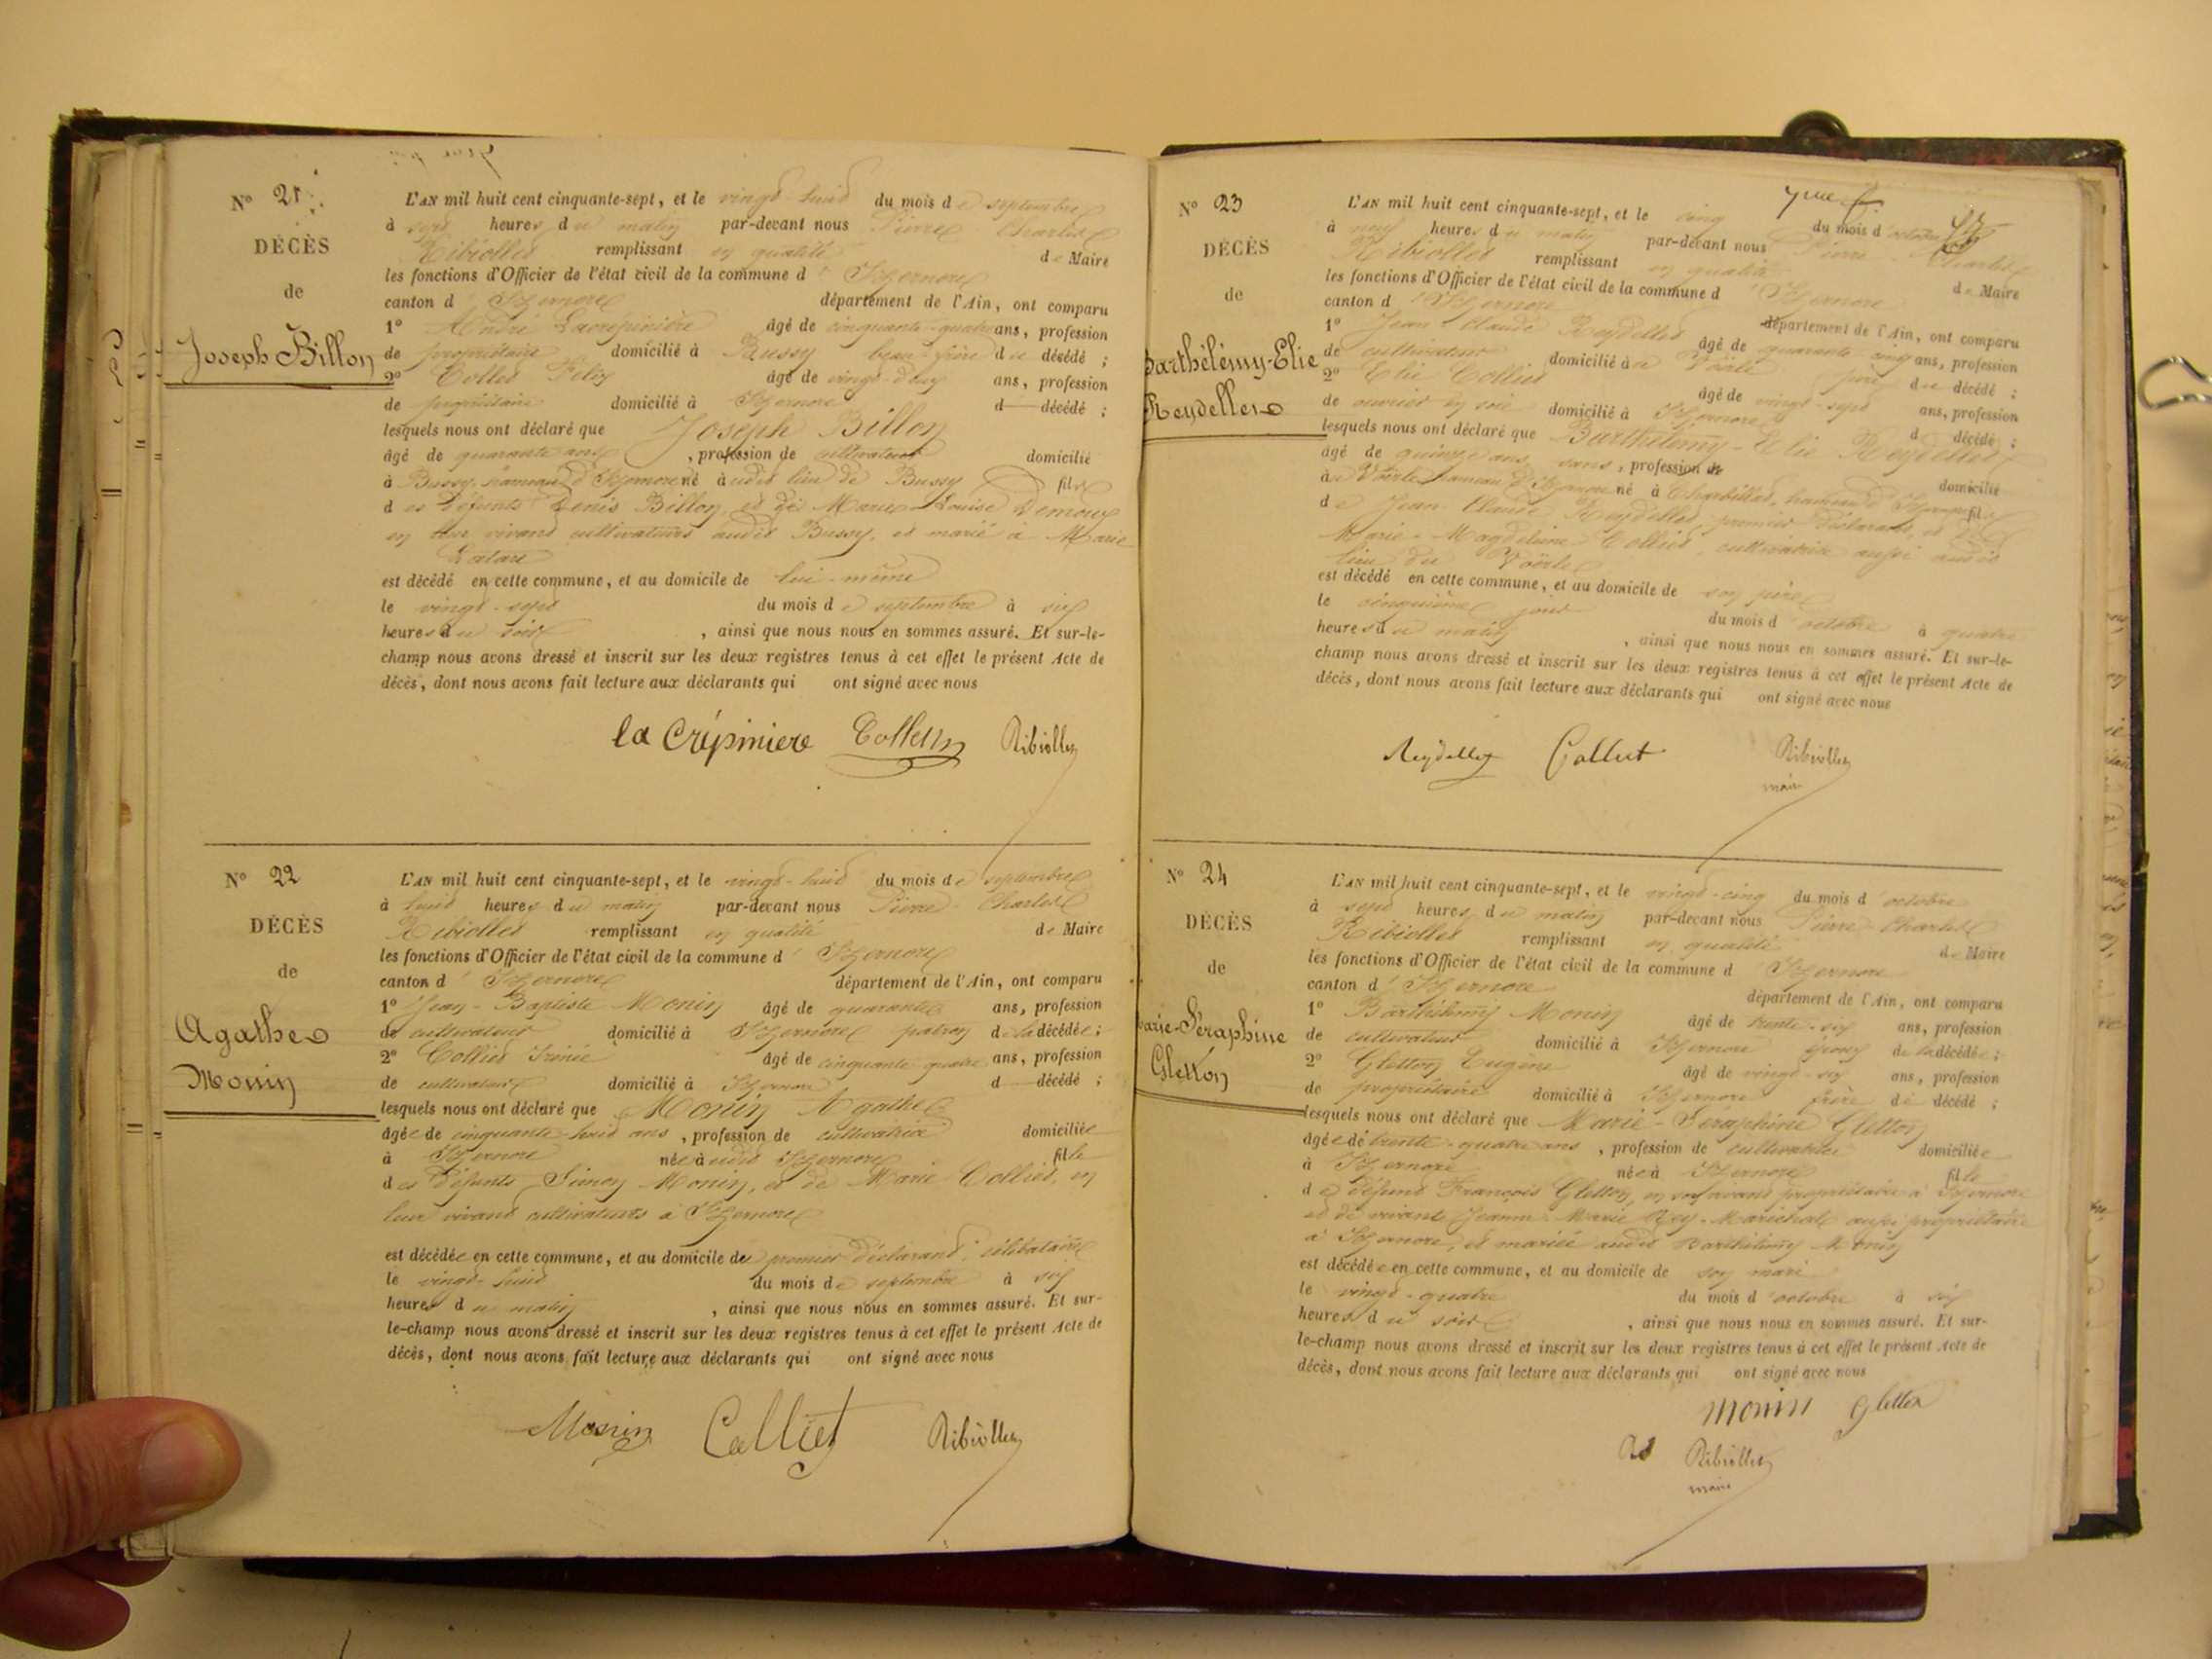 N° 21
DÉCÈS
de
Joseph Billon
L'AN mil huit cent cinquante-sept, et le vingt-huit du mois de septembre
à sept heures du matin par-devant nous Pierre Charles
Ribiollet remplissant en qualité de Maire
les fonctions d'Officier de l'état civil de la commune d'Izernore
canton d'Izernore département de l'Ain, ont comparu
1° André Lacrépinière âgé de cinquante-quatre ans, profession
de propriétaire domicilié à Bussy beau-frère du décédé ;
2° Collet Félix âgé de vingt-deux ans, profession
de propriétaire domicilié à Izernore d décédé ;
lesquels nous ont déclaré que Joseph Billon
âgé de quarante ans , profession de cultivateur domicilié
à Bussy, hameau d'Izernore né audit lieu de Bussy fils
des défunts Denis Billon, et de Marie Louise Demoux
en leur vivant cultivateurs audit Bussy, et marié à Marie
est décédé en cette commune, et au domicile de lui-même
le vingt-sept du mois de septembre à six
heures du soir , ainsi que nous nous en sommes assuré. Et sur-le-
champ nous avons dressé et inscrit sur les deux registres tenus à cet effet le présent Acte de
décès, dont nous avons fait lecture aux déclarants qui ont signé avec nous
la Crépiniere Collet Ribiollet
N° 22
DÉCÈS
de
Agathe
Monin
L'AN mil huit cent cinquante-sept, et le vingt-huit du mois de septembre
à huit heures du matin par-devant nous Pierre Charles
Ribiollet remplissant en qualité de Maire
les fonctions d'Officier de l'état civil de la commune d'Izernore
canton d'Izernore département de l'Ain, ont comparu
1° Jean-Baptiste Monin âgé de quarante ans, profession
de cultivateur domicilié à Izernore patron de la décédée ;
2° Colliet Irénée âgé de cinquante quatre ans, profession
de cultivateur domicilié à Izernore d décédé ;
lesquels nous ont déclaré que Monin Agathe
âgée de cinquante-huit ans , profession de cultivatrice domiciliée
à Izernore née audit Izernore fille
des défunts Simon Monin, et de Marie Colliet, en
leur vivant cultivateurs à Izernore
est décédée en cette commune, et au domicile du premier déclarant, célibataire
le vingt-huit du mois de septembre à six
heures du matin , ainsi que nous nous en sommes assuré. Et sur-
le-champ nous avons dressé et inscrit sur les deux registres tenus à cet effet le présent Acte de
décès, dont nous avons fait lecture aux déclarants qui ont signé avec nous
Monin Colliet Ribiollet
N° 23
DÉCÈS
de
Barthélémy-Elie
Reydellet
L'AN mil huit cent cinquante-sept, et le cinq du mois d'octobre
à neuf heures du matin par-devant nous Pierre Charles
Ribiollet remplissant en qualité de Maire
les fonctions d'Officier de l'état civil de la commune d'Izernore
canton d'Izernore département de l'Ain, ont comparu
1° Jean-Claude Reydellet âgé de quarante cinq ans, profession
de cultivateur domicilié à Voërle père du décédé ;
2° Elie Colliet âgé de vingt-sept ans, profession
de ouvrier en soie domicilié à Izernore d décédé ;
lesquels nous ont déclaré que Barthélemy-Elie Reydellet
âgé de quinze ans, sans , profession domicilié
à Voërle hameau d'Izernore né à Charbillat, hameau d'Izernore fils
de Jean-Claude Reydellet, premier déclarant, et de
Marie-Magdeleine Colliet, cultivatrice aussi audit
lieu du Voërle
est décédé en cette commune, et au domicile de son père
le cinquième jour du mois d'octobre à quatre
heures du matin , ainsi que nous nous en sommes assuré. Et sur-le-
champ nous avons dressé et inscrit sur les deux registres tenus à cet effet le présent Acte de
décès, dont nous avons fait lecture aux déclarants qui ont signé avec nous
Reydellet Colliet Ribiollet
maire
N° 24
DÉCÈS
de
Marie-Séraphine
Gletton
L'AN mil huit cent cinquante-sept, et le vingt-cinq du mois d'octobre
à sept heures du matin par-devant nous Pierre Charles
Ribiollet remplissant en qualité de Maire
les fonctions d'Officier de l'état civil de la commune d'Izernore
canton d'Izernore département de l'Ain, ont comparu
1° Barthélemy Monin âgé de trente-six ans, profession
de cultivateur domicilié à Izernore époux de la décédée ;
2° Gletton Eugène âgé de vingt-six ans, profession
de propriétaire domicilié à Izernore frère de décédé ;
lesquels nous ont déclaré que Marie-Séraphine Gletton
âgée de trente-quatre ans , profession de cultivatrice domiciliée
à Izernore née à Izernore fille
de défunt François Gletton, en son vivant propriétaire à Izernore
et de vivante Jeanne-Marie Rey-Marichal aussi propriétaire
à Izernore, et mariée audit Barthélemy Monin
est décédée en cette commune, et au domicile de son mari
le vingt-quatre du mois d'octobre à six
heures du soir , ainsi que nous nous en sommes assuré. Et sur-
le-champ nous avons dressé et inscrit sur les deux registres tenus à cet effet le présent Acte de
décès, dont nous avons fait lecture aux déclarants qui ont signé avec nous
Monin Gletton
Ribiollet
maire